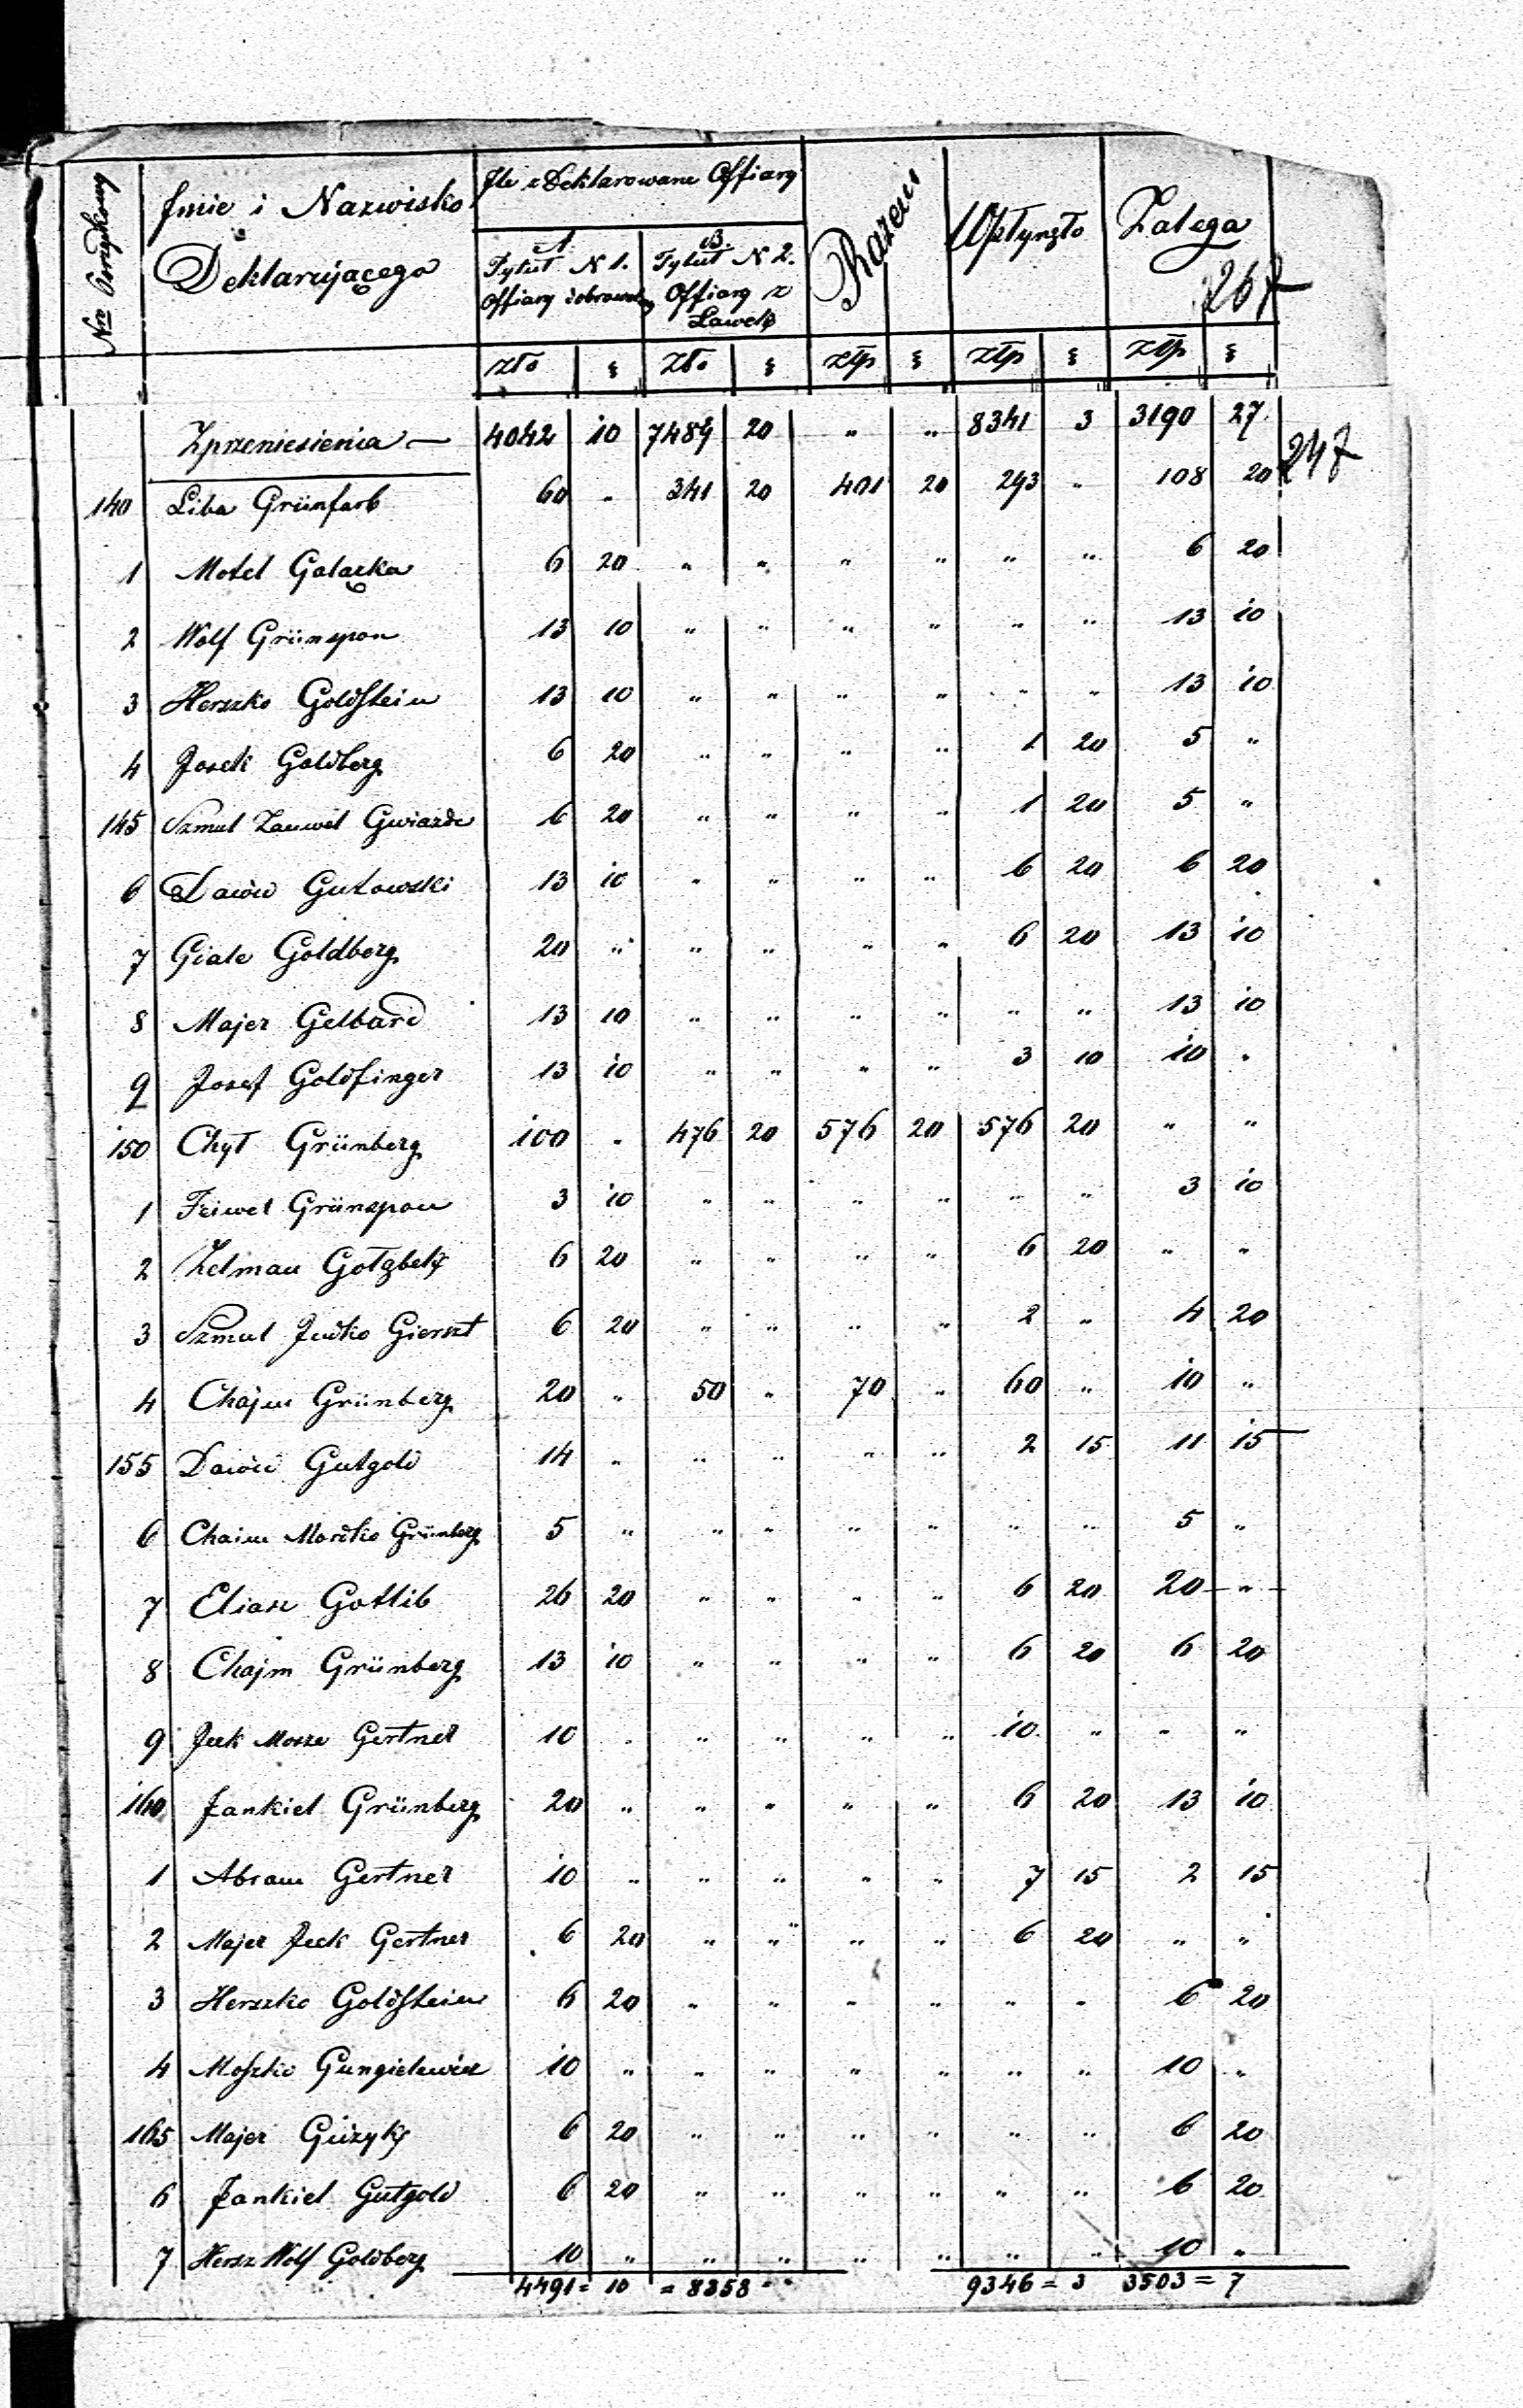 Nro Porządkowy
Imie i Nazwisko
Deklarującego
Ile z Deklarowane Offiary
A. Tytuł N 1.
Offiary dobrowolny
B. Tytuł N 2.
Offiary z
Ławek
Razem
Wpłynęło
Zalega
267
złp g złp g złp g złp g złp g
Zprzeniesienia — 4042 10 7489 20 " " 8341 3 3190 27
247
140 Liba Grünfarb 60 " 341 20 401 20 293 " 108 20
1 Motel Galązka 6 20 " " " " " " 6 20
2 Wolf Grünspon 13 10 " " " " " " 13 10
3 Herszko Goldstein 13 10 " " " " " " 13 10
4 Josek Goldberg 6 20 " " " " 1 20 5 "
145 Szmul Zauwel Gwiazda 6 20 " " " " 1 20 5 "
6 Dawid Gutowski 13 10 " " " " 6 20 6 20
7 Giale Goldberg 20 " " " " " 6 20 13 10
8 Majer Gelbard 13 10 " " " " " " 13 10
9 Josef Goldfinger 13 10 " " " " 3 10 10 "
150 Chył Grünberg 100 " 476 20 576 20 576 20 " "
1 Feiwel Grünspon 3 10 " " " " " " 3 10
2 Zelman 6 20 " " " " 6 20 " "
3 Szmul Judko Gierszt 6 20 " " " " 2 " 4 20
4 Chajm Grünberg 20 " 50 " 70 " 60 " 10 "
155 Dawid Gutgold 14 " " " " " 2 15 11 15
6 Chaim Mordko Grünberg 5 " " " " " " " 5 "
7 Eliasz Gotlib 26 20 " " " " 6 20 20 "
8 Chajm Grünberg 13 10 " " " " 6 20 6 20
9 Icek Mosze Gertner 10 " " " " " 10 " " "
160 Jankiel Grünberg 20 " " " " " 6 20 13 10
1 Abram Gertner 10 " " " " " 7 15 2 15
2 Majer Icek Gertner 6 20 " " " " 6 20 " "
3 Herszko Goldstein 6 20 " " " " " " 6 20
4 Moszko Gungielewicz 10 " " " " " " " 10 "
165 Majer 6 20 " " " " " " 6 20
6 Jankiel Gutgold 6 20 " " " " " " 6 20
7 Hersz Wolf Goldberg 10 " " " " " " " 10 "
4491 = 10 = 8358 - " 9346 = 3 3503 = 7